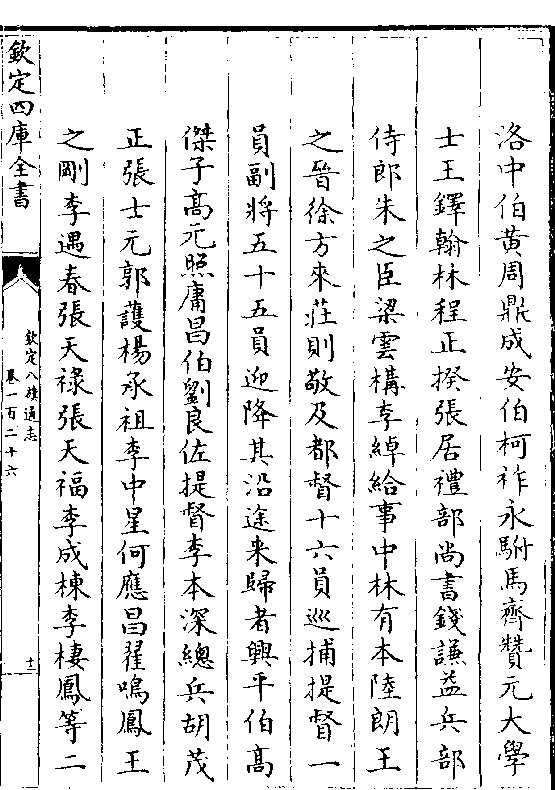 洛中伯黄周鼎成安伯柯祚永駙馬齊贊元大學
士王鐸翰林程正揆張居禮部尚書錢謙益兵部
侍郎朱之臣梁雲構李綽給事中林有本陸朗王
之晉徐方來莊則敬及都督十六員巡捕提督一
員副將五十五員迎降其沿途来歸者興平伯髙
傑子髙元照庸昌伯劉良佐提督李本深總兵胡茂
正張士元郭護楊承祖李中星何應昌翟鳴鳳王
之剛李遇春張天祿張天福李成棟李棲鳳等二
欽定四庫全書
欽定八旗通志
卷一百二十六
十一